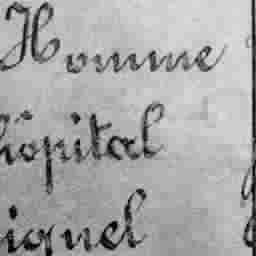 Homme
hôpital
iquel